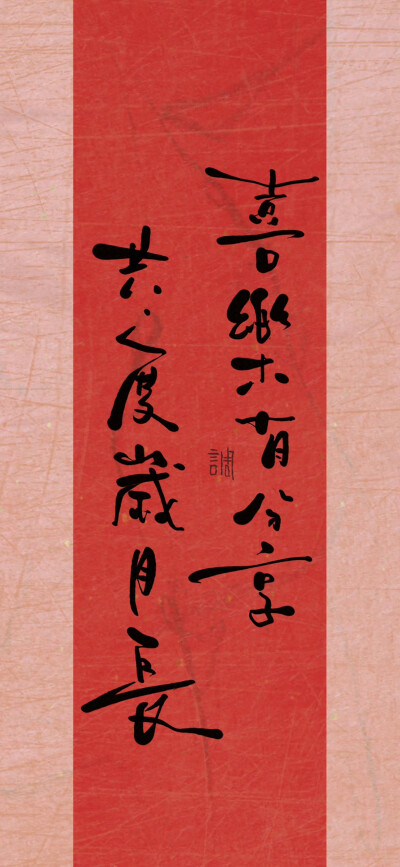 喜樂有分享
共之度歲月長